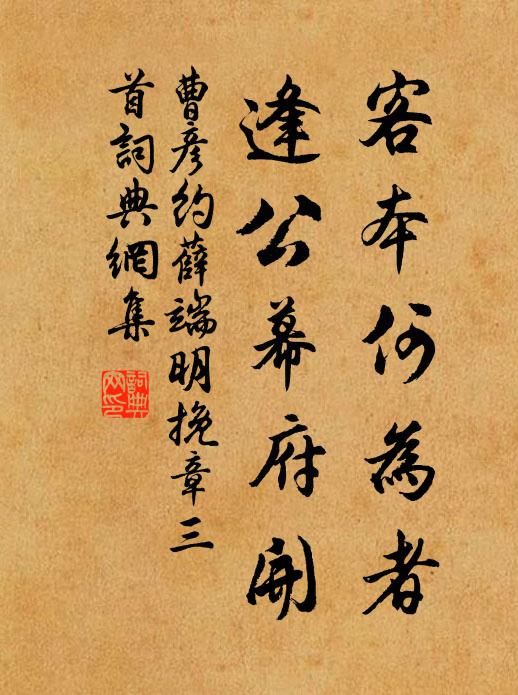 客本何為者
逢公幕府開
曹彥約薛端明挽章三
首詞典網集
詞典
网印